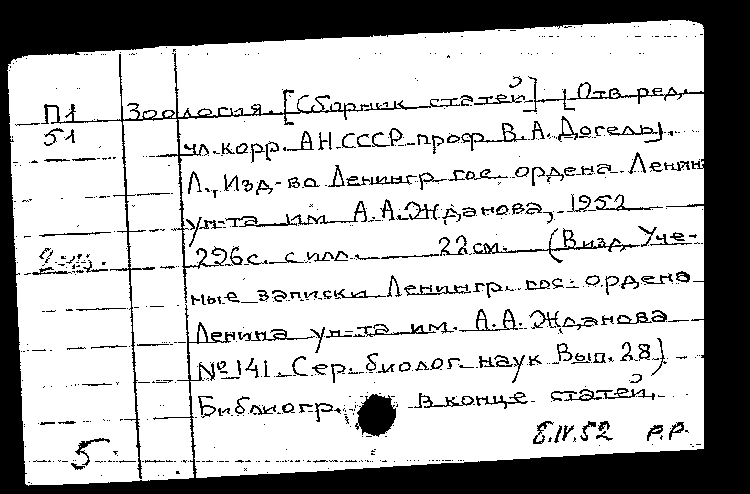 П1 Зоология. [Сборник статей]. [Отв ред,
51 чл. корр. АН.СССР проф. В. А. Догель].
Л., Изд-во Ленингр гос. ордена Ленин
ун-та им А.А.Жданова, 1952
296с. с илл. 22см. (В изд. Уче-
ные записки Ленингр. гос. ордена
Ленина ун-та им. А. А. Жданова
№ 141. Сер. биолог. наук Вып. 28)
Библиогр. в конце статей.
8.IV.52 Р.Р.
5